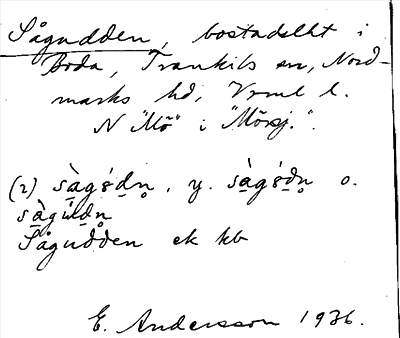 Sågudden, bostadslht i
Boda, Trankils sn, Nord-
marks hd, Vrml l.
N "Mö" i "Mörj.".
(2) sàgǿdn̥, y. sàgǿdn̥ o.
sàgúdn̥
Sågudden ek kb
E. Andersson 1936.